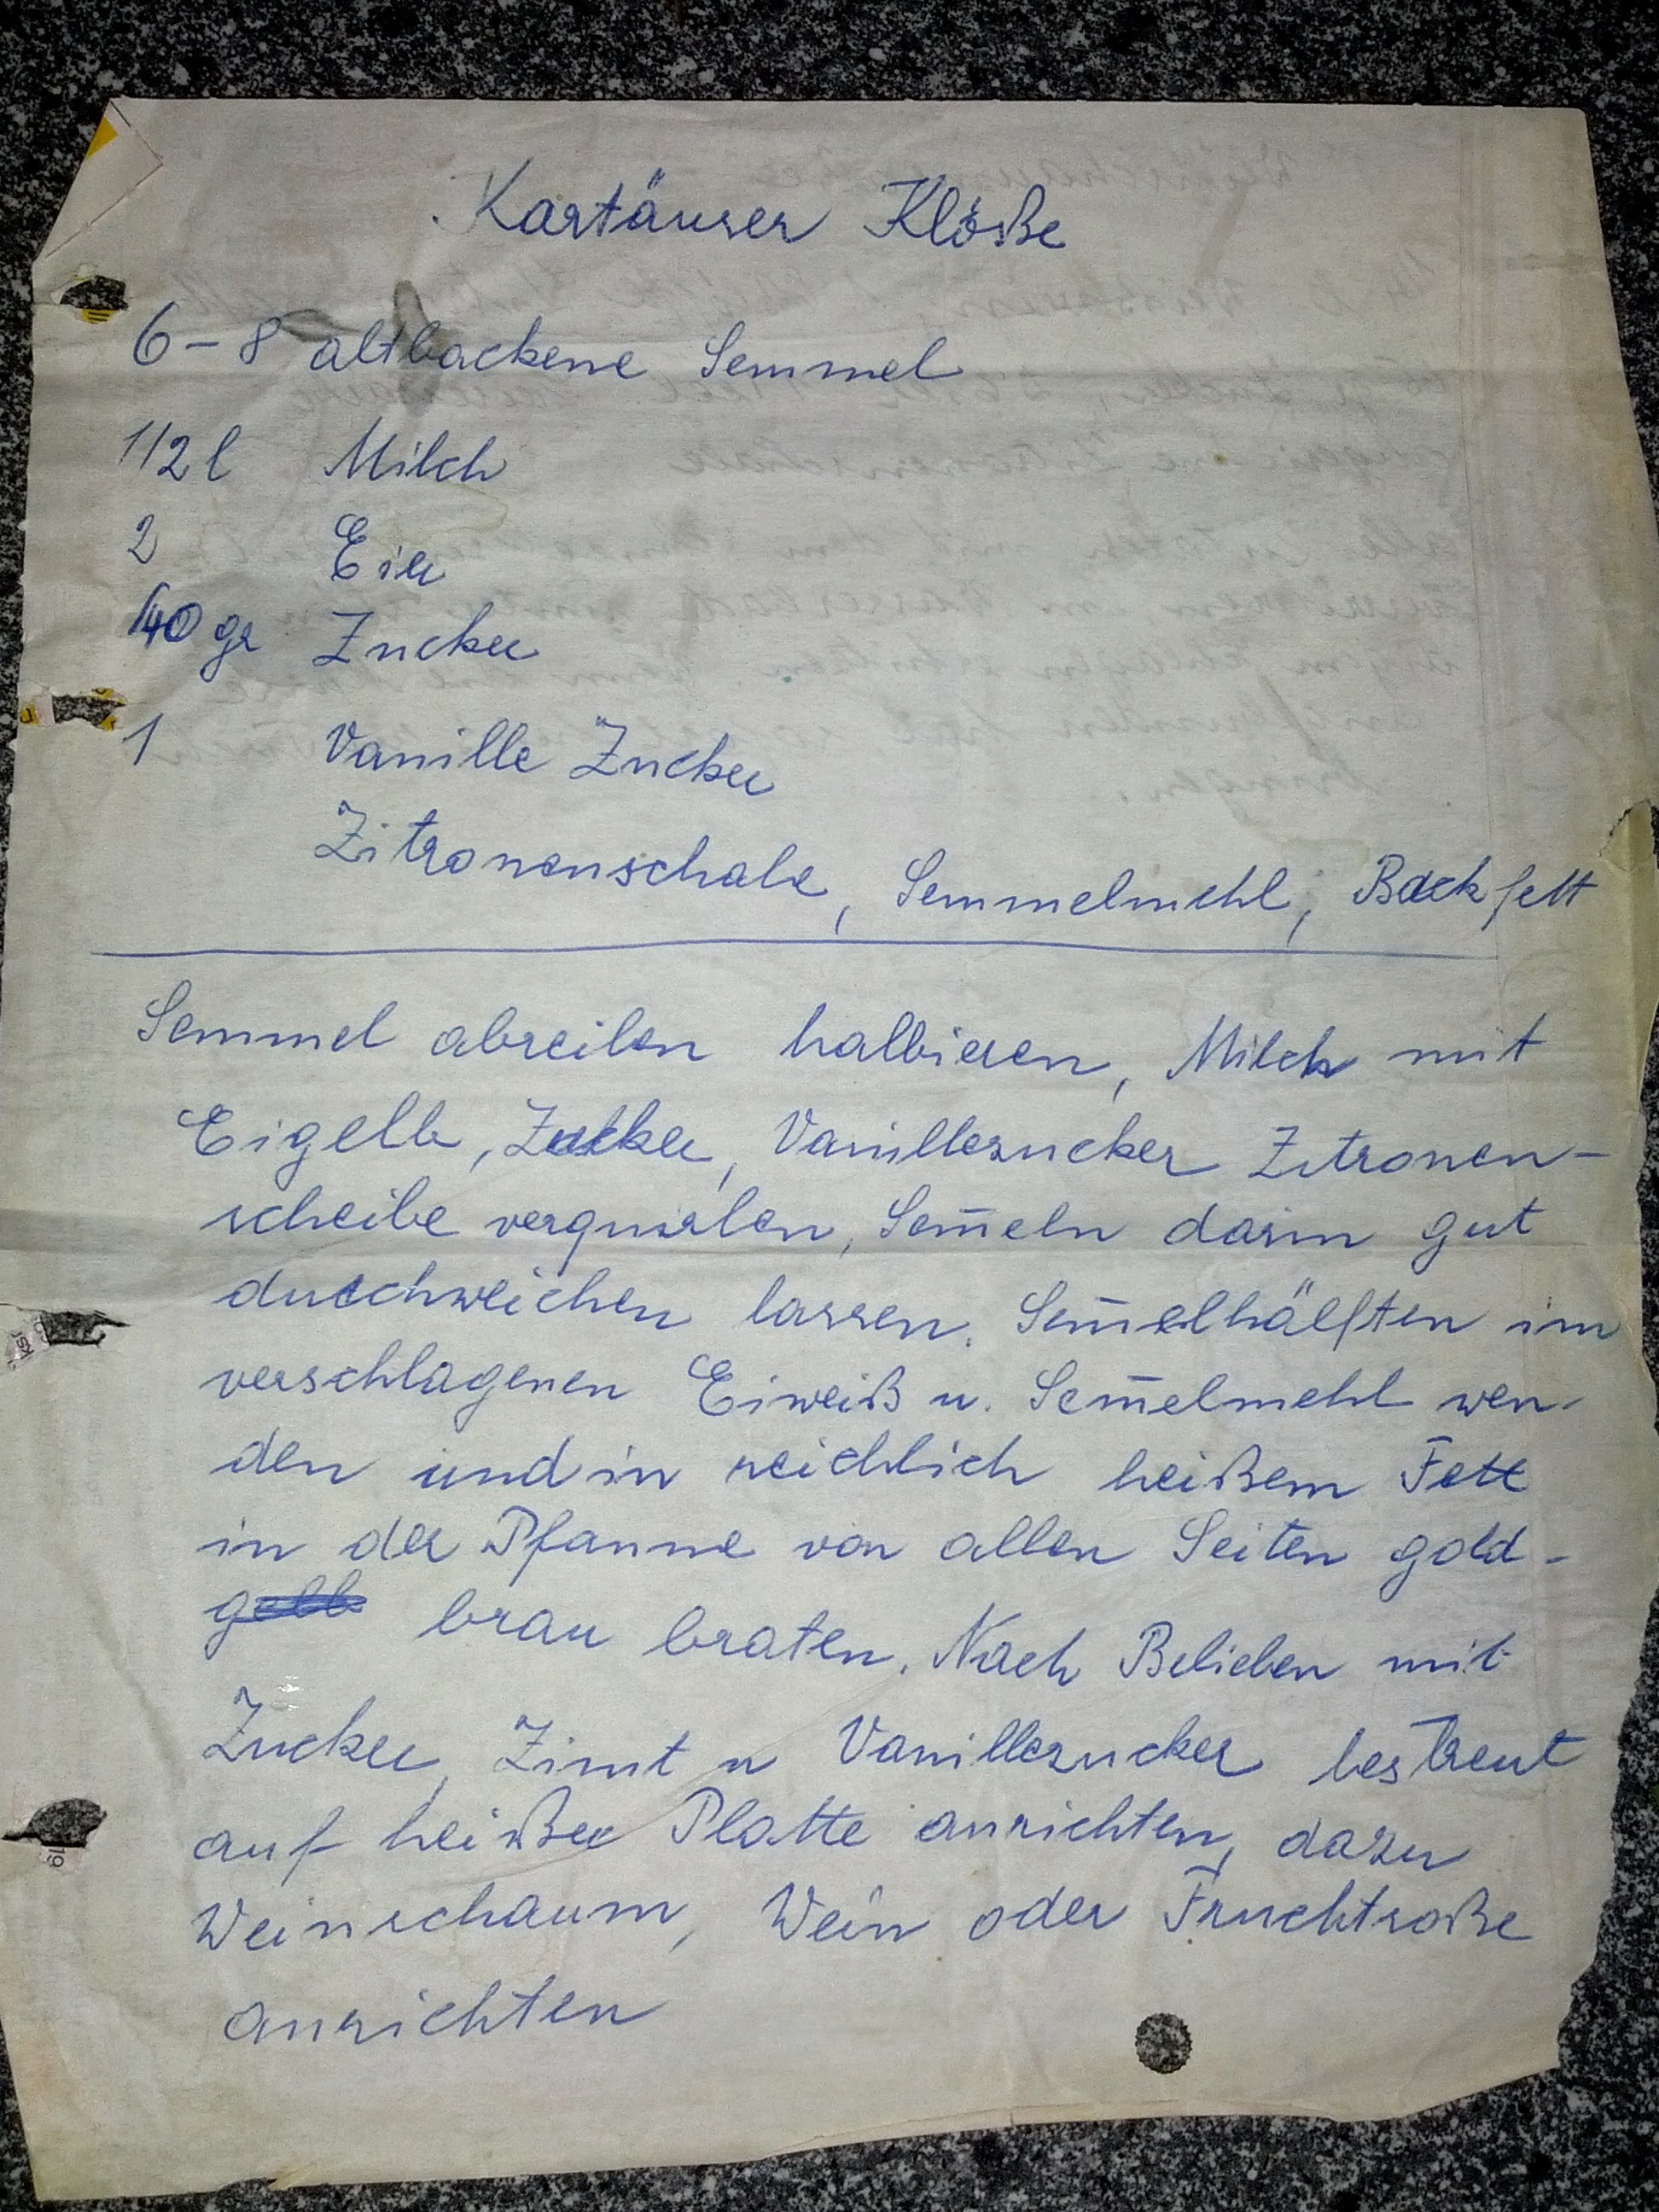 Kartäuser Klöße
6 - 8 altbackene Semmel
1/2 l Milch
2 Eier
40 gr Zucker
1 Vanille Zucker
Zitronenschale, Semmelmehl, Backfett
Semmel abreiben halbieren, Milch mit
Eigelb, Zucker, Vanillezucker Zitronen-
scheibe verquirlen, Sem̄eln darin gut
durchweichen lassen. Sem̄elhälften im
verschlagenen Eiweiß u. Sem̄elmehl wen-
den und in reichlich heißem Fett
in der Pfanne von allen Seiten gold-
brau braten. Nach Belieben mit
Zucker, Zimt u Vanillezucker bestreut
auf heißer Platte anrichten, dazu
Weinschaum, Wein oder Fruchtsoße
anrichten